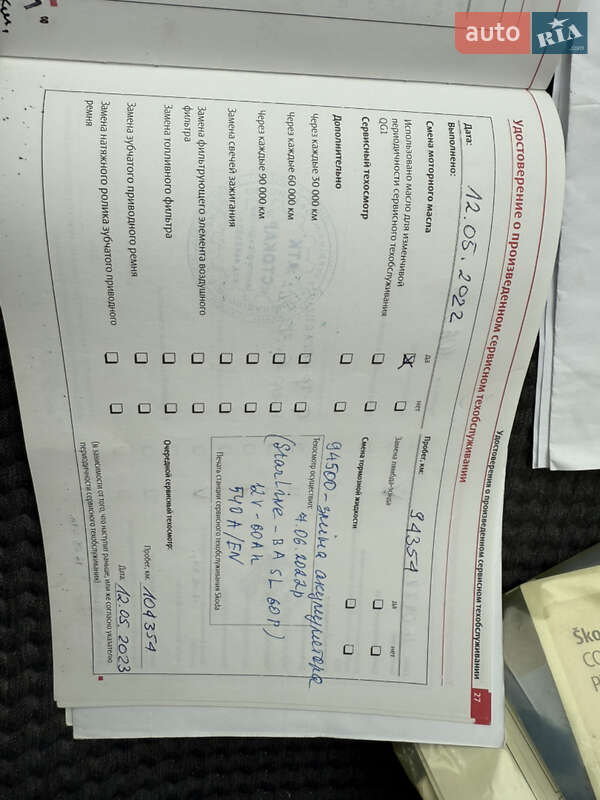 auto RIA.com
Удостоверение о произведенном сервисном техобслуживании
27
Удостоверение о произведенном сервисном техобслуживании
Дата: 12.05.2022
Выполнено:
да нет
Смена моторного масла
Использовано масло для изменчивой
периодичности сервисного техобслуживания
QG1
Сервисный техосмотр
Дополнительно
Через каждые 30 000 км
Через каждые 60 000 км
Через каждые 90 000 км
Замена свечей зажигания
Замена фильтрующего элемента воздушного
фильтра
Замена топливного фильтра
Замена зубчатого приводного ремня
Замена натяжного ролика зубчатого приводного
ремня
Пробег, км: 94354
да нет
Замена лямбда-зонда
Смена тормозной жидкости
94500 - заміна акумулятора
Техосмотр осуществил:
4.06.2022р
(StarLine - BA SL 60P)
12V - 60Ah
540A/EN
Печать станции сервисного техобслуживания Skoda
Очередной сервисный техосмотр:
Пробег, км: 104354
Дата: 12.05.2023
(в зависимости от того, что наступит раньше, или же согласно указателю
периодичности сервисного техобслуживания)
8
Ško
CO